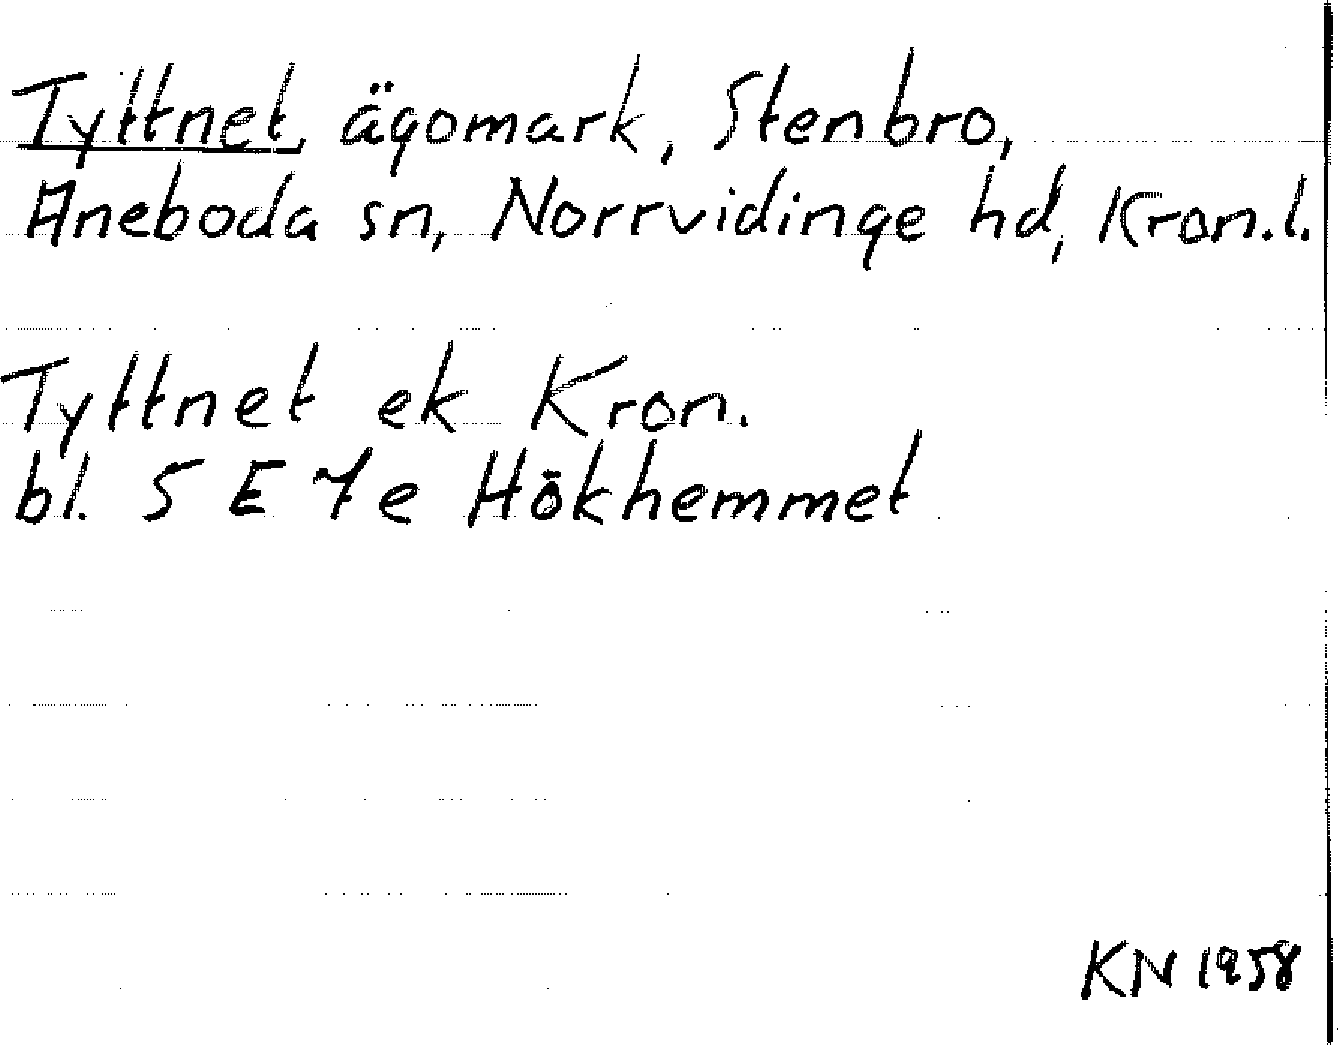 Tyttnet, ägomark, Stenbro,
Aneboda sn, Norrvidinge hd, Kron.l.
Tyttnet ek Kron.
bl. 5 E 7e Hökhemmet
KN 1958